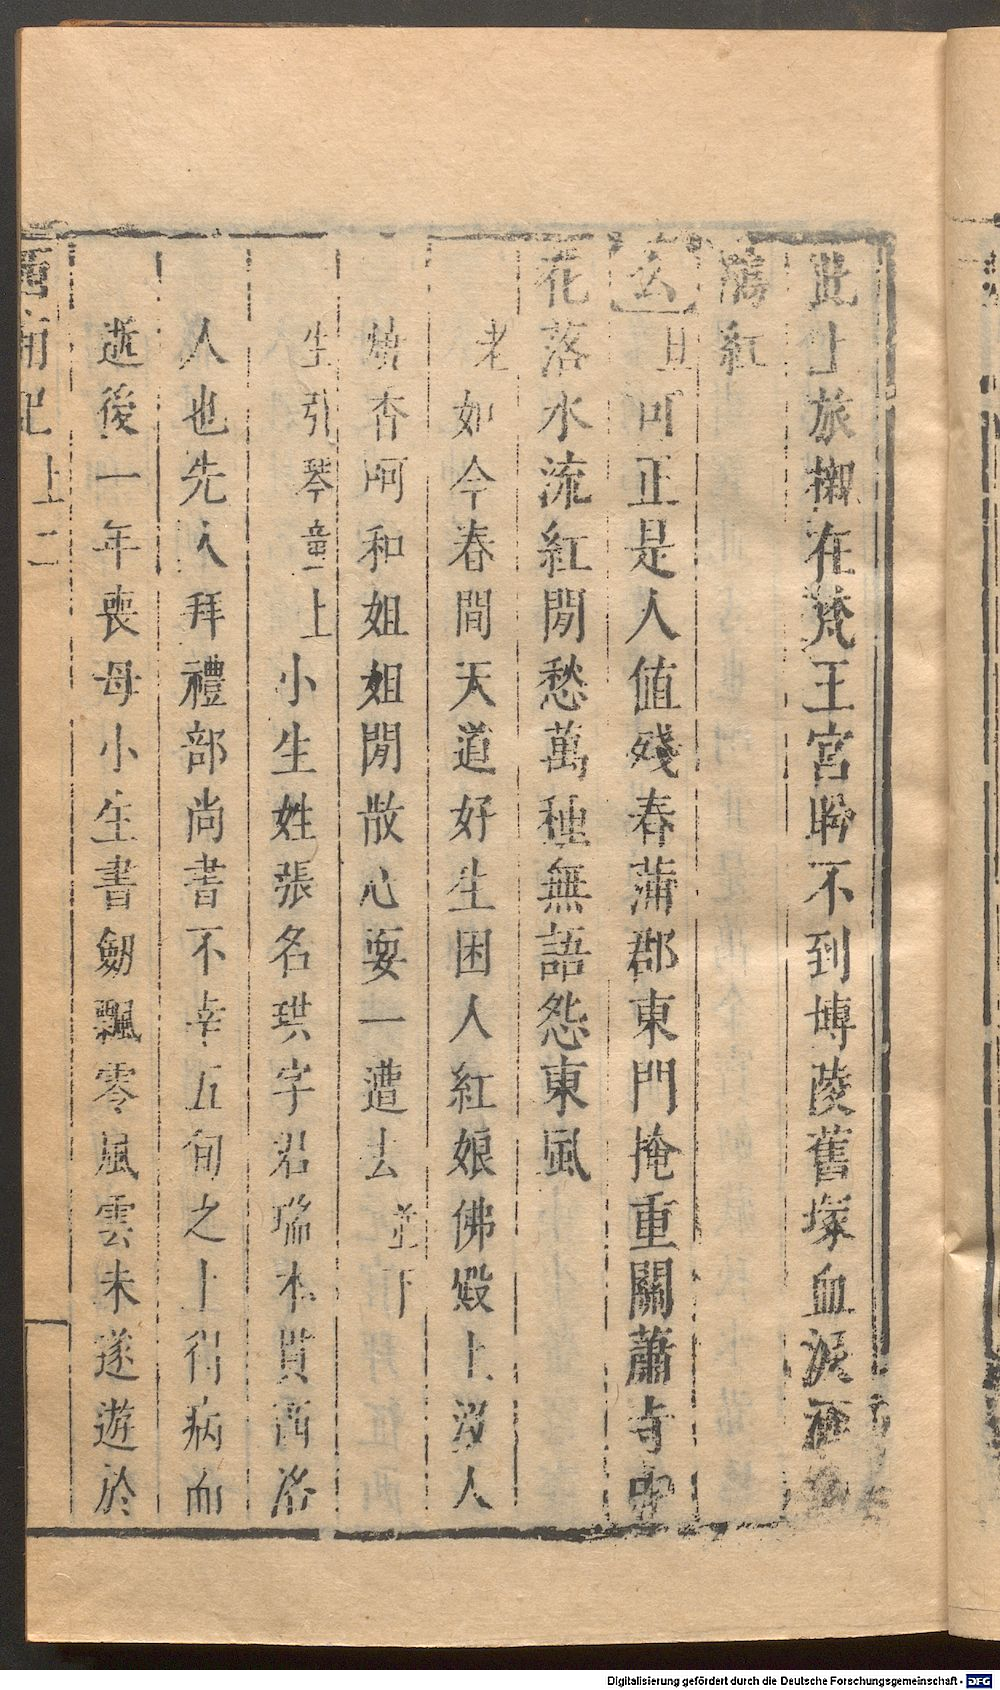 此上旅櫬在梵王宮盼不到博陵舊塚血淚洒
鵑紅
么 旦 可正是人值殘春蒲郡東門掩重關蕭寺中
花落水流紅閒愁萬種無語怨東風
老 如今春間天道好生困人紅娘佛殿上沒人
燒香呵和姐姐閒散心耍一遭去 並下
生引琴童上 小生姓張名珙字君瑞本貫西洛
人也先人拜禮部尚書不幸五旬之上得病而
逝後一年喪母小生書劒飄零風雲未遂遊於
西廂記 上 二
Digitalisierung gefördert durch die Deutsche Forschungsgemeinschaft - DFG